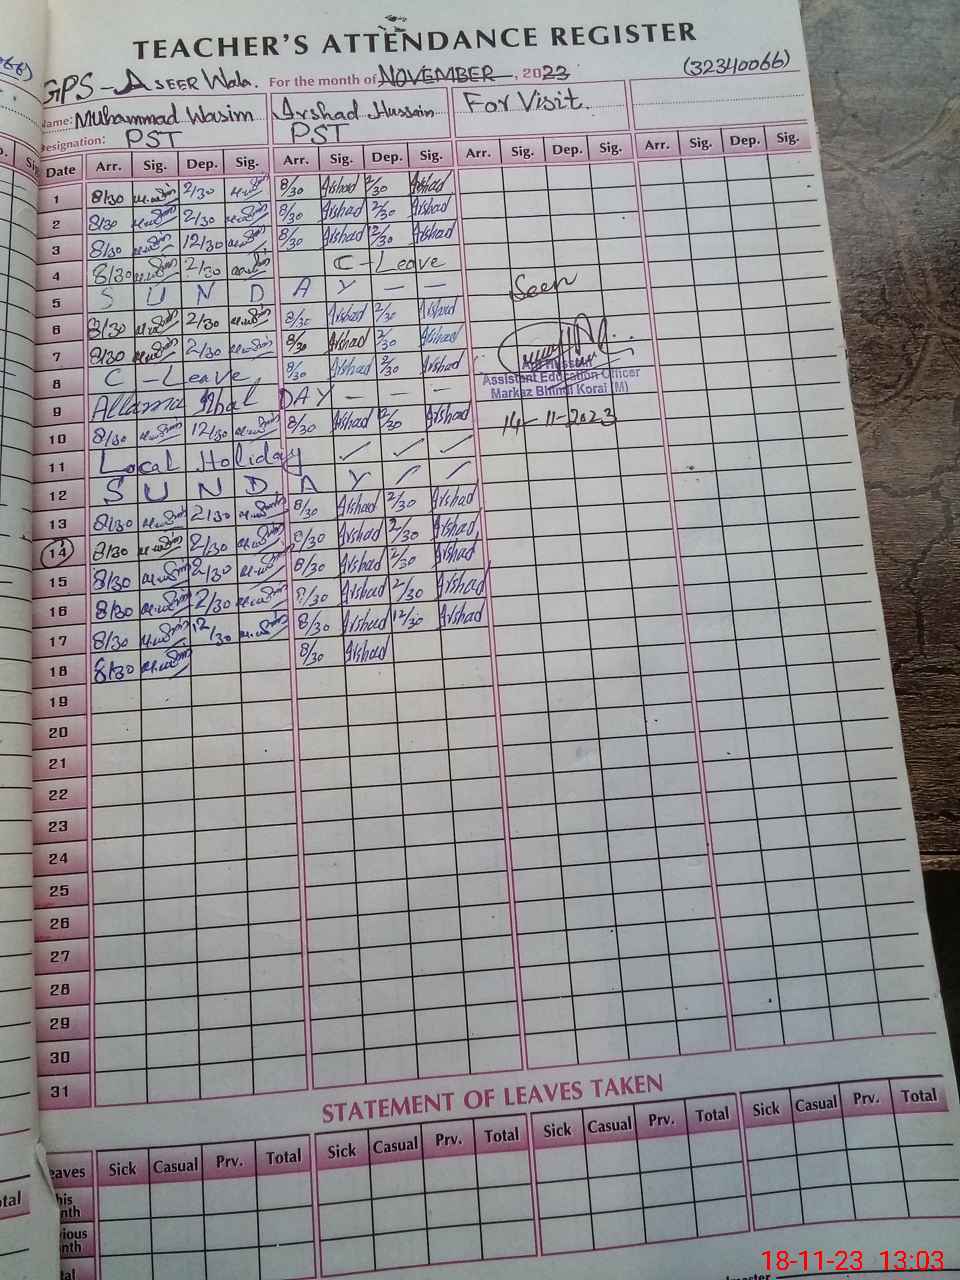 TEACHER'S ATTENDANCE REGISTER
GPS - ASEER Wala. For the month of NOVEMBER, 2023 (32340066)
Name: Muhammad Wasim Arshad Hussain For Visit.
Designation: PST PST
Date Arr. Sig. Dep. Sig. Arr. Sig. Dep. Sig. Arr. Sig. Dep. Sig. Arr. Sig. Dep. Sig.
1 8/30 2/30 8/30 Arshad 2/30 Arshad
2 8/30 2/30 8/30 Arshad 2/30 Arshad
3 8/30 12/30 8/30 Arshad 12/30 Arshad
4 8/30 2/30 C - Leave
5 S U N D A Y — — Seen
6 8/30 2/30 8/30 Arshad 2/30 Arshad
7 8/30 2/30 8/30 Arshad 2/30 Arshad
8 C - Leave 8/30 Arshad 2/30 Arshad
Assistant Education Officer
Markaz Bhimi Korai (M)
9 Allama Iqbal DAY — —
10 8/30 12/30 8/30 Arshad 12/30 Arshad
14-11-2023
11 Local Holiday
12 S U N D A Y
13 8/30 2/30 8/30 Arshad 2/30 Arshad
14 8/30 2/30 8/30 Arshad 2/30 Arshad
15 8/30 2/30 8/30 Arshad 2/30 Arshad
16 8/30 2/30 8/30 Arshad 2/30 Arshad
17 8/30 12/30 8/30 Arshad 12/30 Arshad
18 8/30 8/30 Arshad
19
20
21
22
23
24
25
26
27
28
29
30
31
STATEMENT OF LEAVES TAKEN
eaves Sick Casual Prv. Total Sick Casual Prv. Total Sick Casual Prv. Total Sick Casual Prv. Total
his
nth
vious
onth
tal
18-11-23 13:03